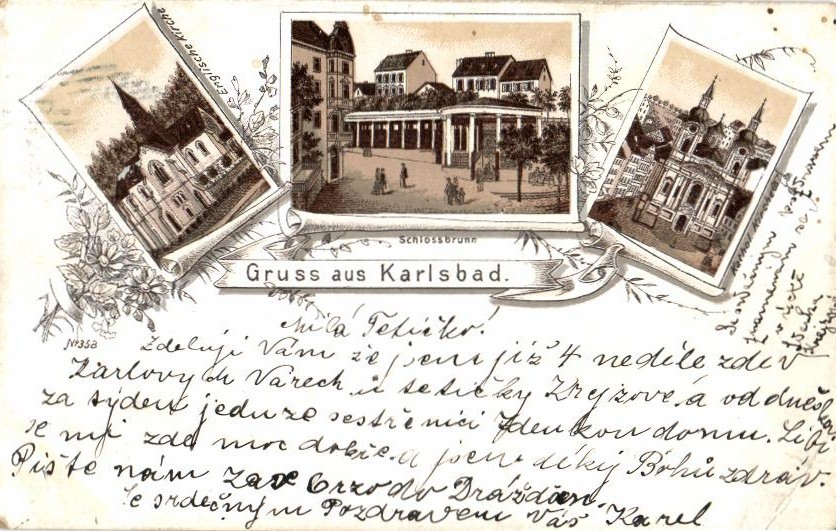 Englische Kirche
Schlossbrunn
Gruss aus Karlsbad.
No 358
Milá Tetičko!
Zdeluji Vám že jsem již 4 neděle zde v
Karlových Varech u tetičky Krejzové a od dneška
za týden jedu ze sestřenicí Zdenkou domu. Líbí
se mi zde moc dobře a jsem díky Bohu zdráv.
Pište nám zase brzo do Drážďan
Se srdečným Pozdravem Váš Karel